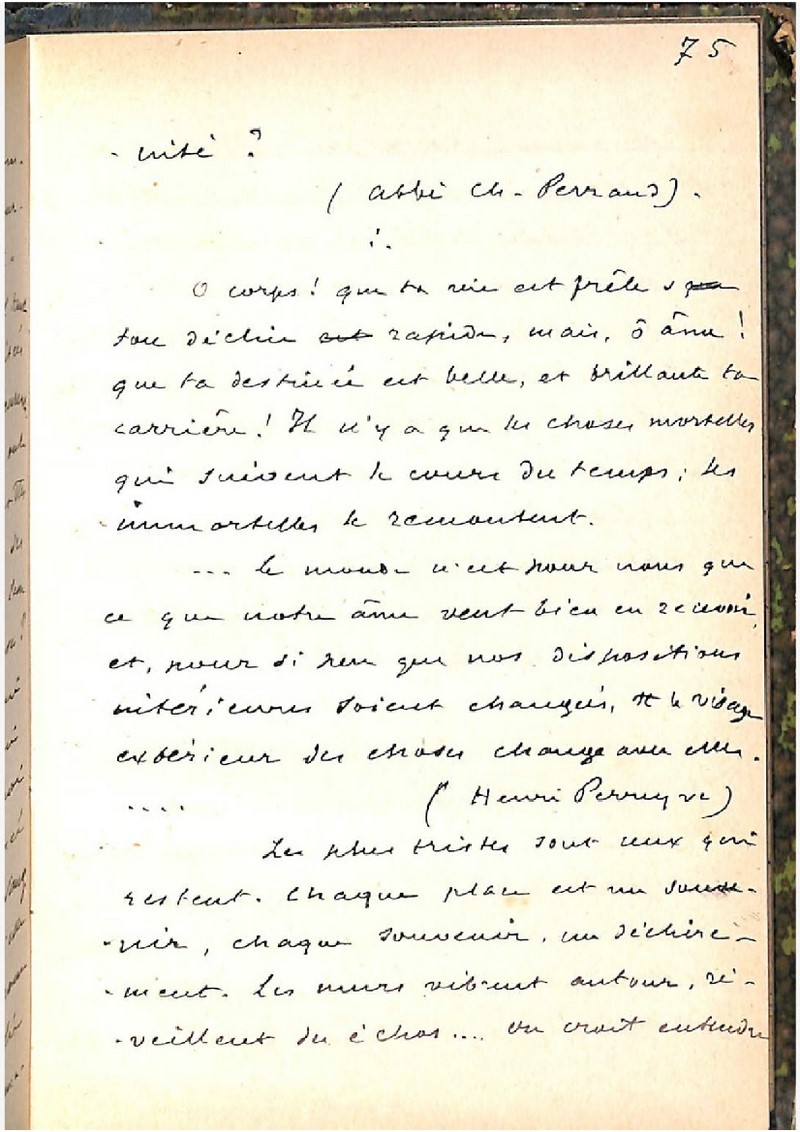 75
- nité ?
( Abbé Ch. Perraud ).
O corps ! que ta vie est frêle &
ton déclin rapide, mais, ô âme !
que ta destinée est belle, et brillante ta
carrière ! Il n'y a que les choses mortelles
qui suivent le cours du temps ; les
immortelles le remontent.
... le monde n'est pour nous que
ce que notre âme veut bien en recevoir,
et, pour si peu que nos dispositions
intérieures soient changées, le visage
extérieur des choses change avec elles.
.... ( Henri Perreyve )
Les plus tristes sont ceux qui
restent. Chaque place est un souve-
-nir, chaque souvenir, un déchire-
-ment. Les murs vibrent autour, ré-
-veillent des échos.... On croit entendre